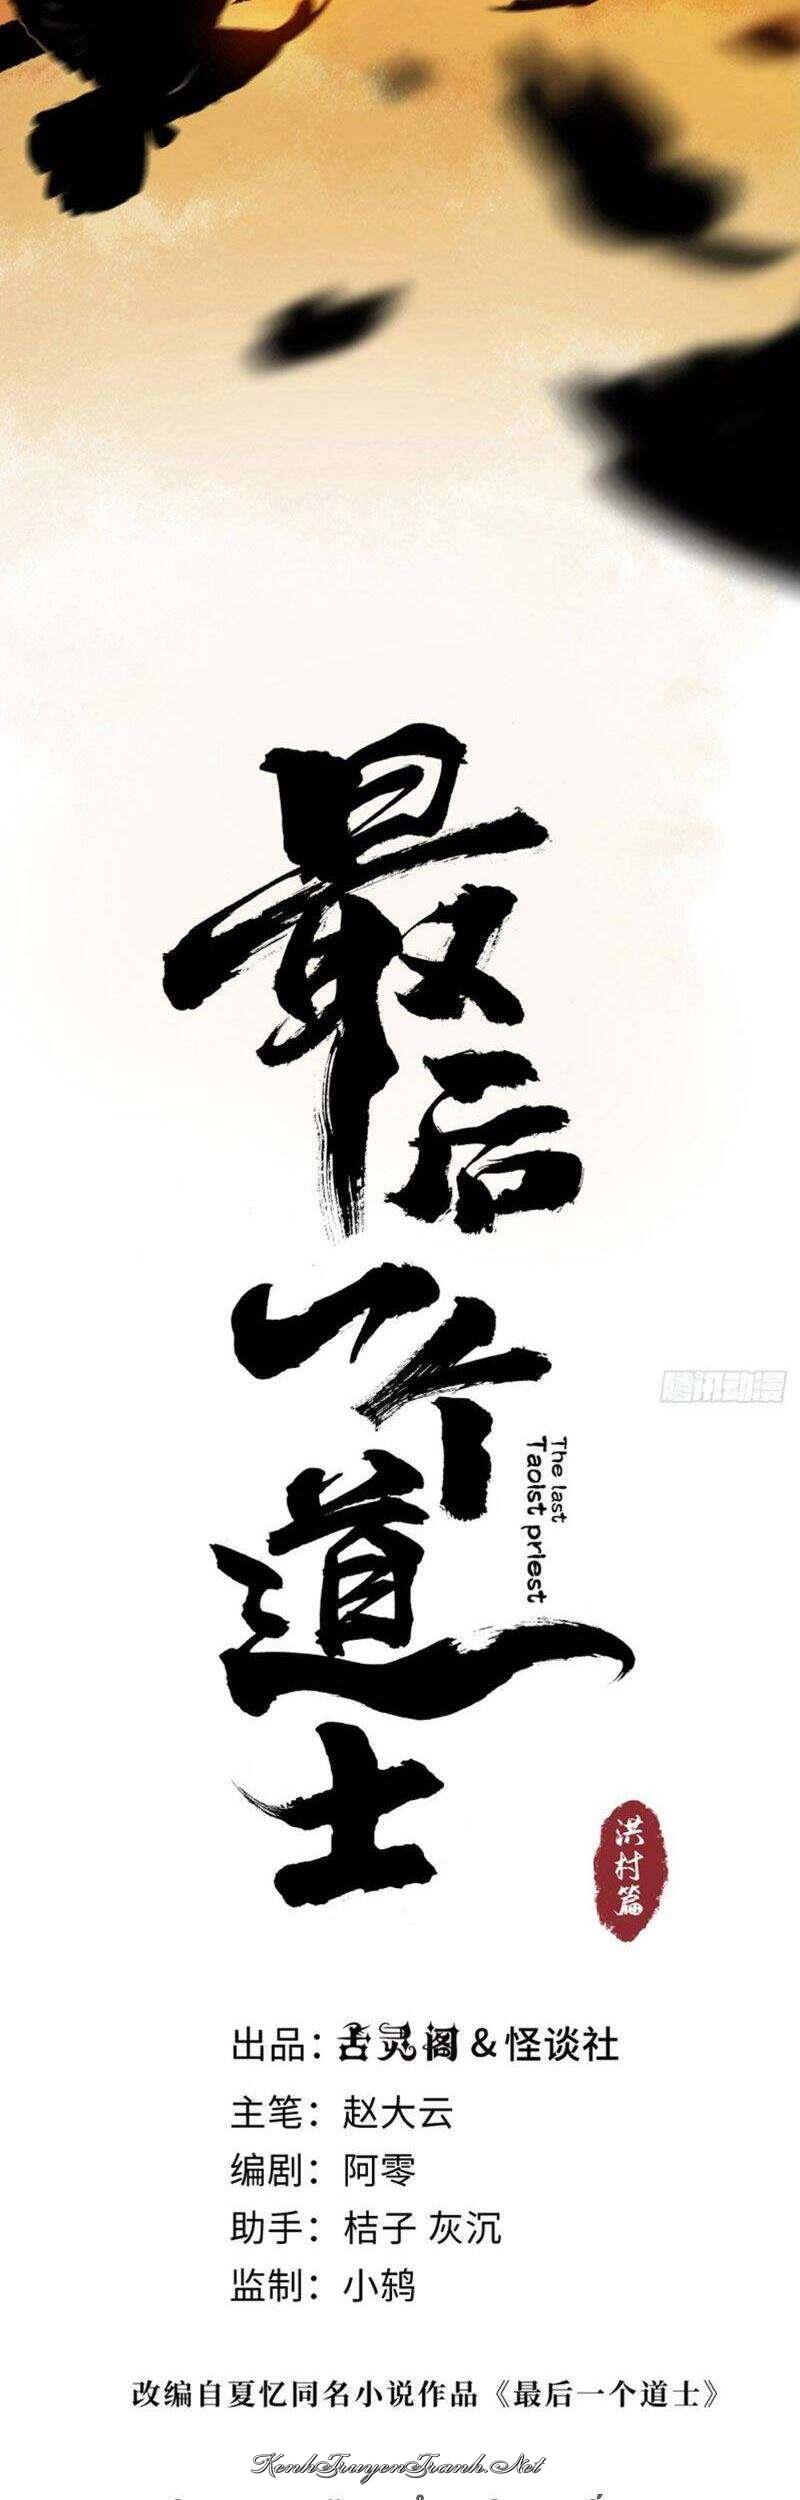 最后一个道士
The last
Taoist priest
腾讯动漫
洪村篇
出品：古灵阁&怪谈社
主笔：赵大云
编剧：阿零
助手：桔子 灰沉
监制：小鸫
改编自夏忆同名小说作品《最后一个道士》
KenhTruyenTranh.Net